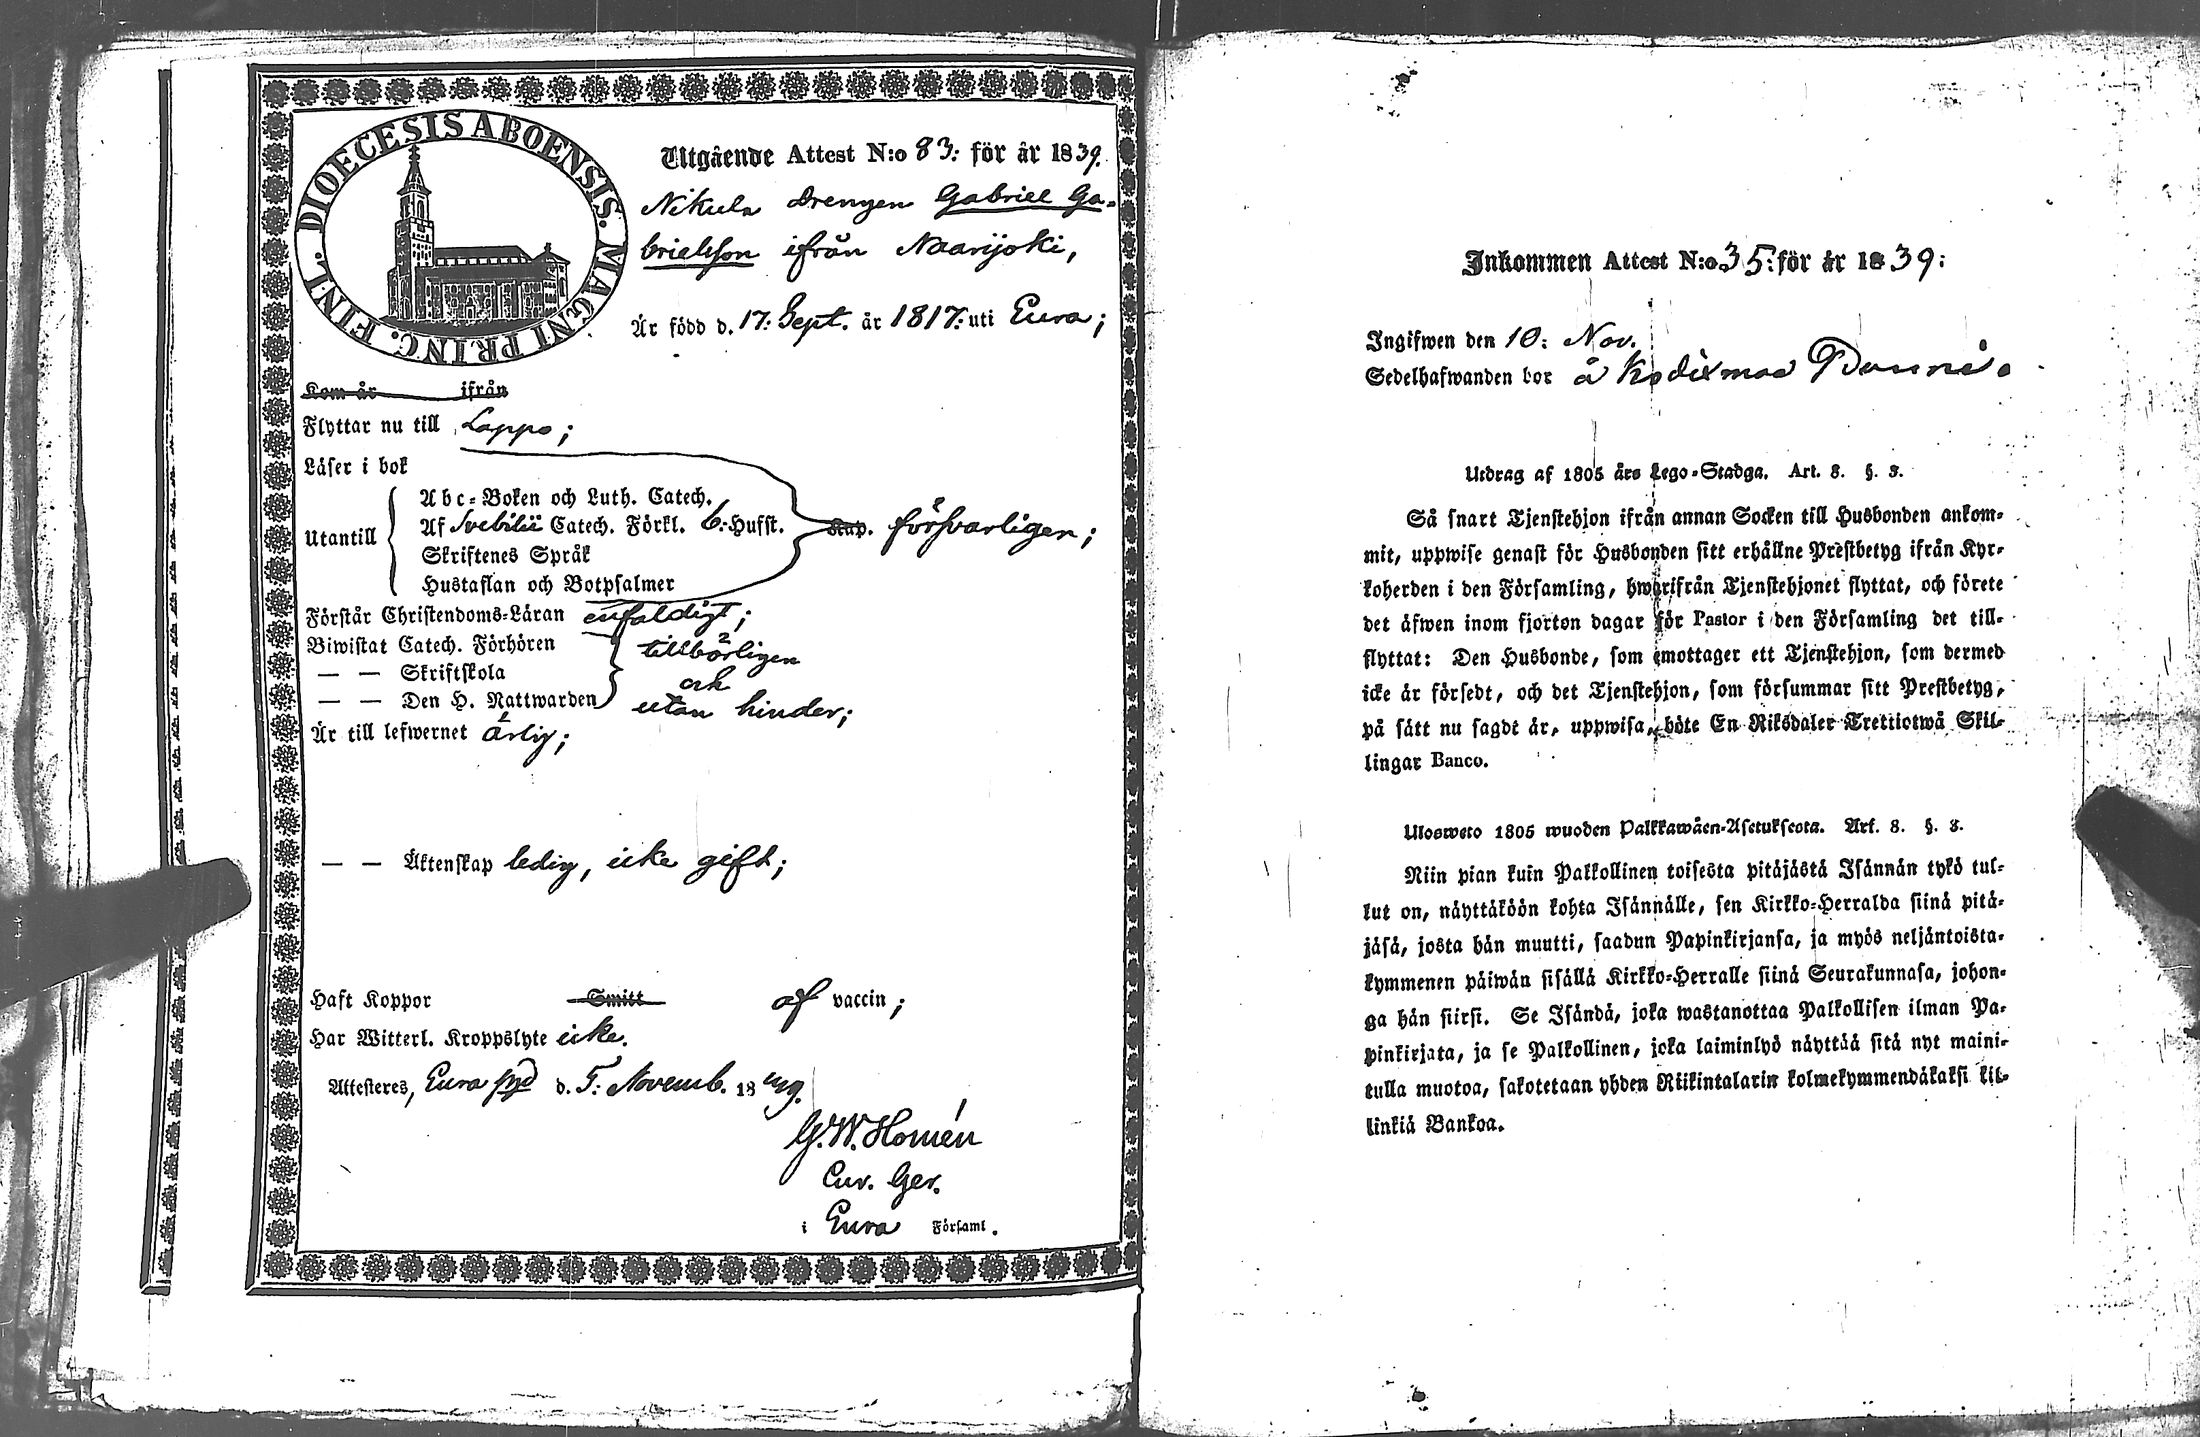 DIOECESIS ABOENSIS. MAGNI PRINC. FINL.
Utgående Attest N:o 83: för år 1839.
Nikula drengen Gabriel Ga-
brielsson ifrån Naarijoki,
Är född d. 17: Sept. år 1817: uti Eura;
Kom år ifrån
Flyttar nu till Lappo;
Läser i bok
Utantill
Abc-Boken och Luth. Catech.
Af Svebilii Catech. Förkl. 6: Hufst. Kap. försvarligen;
Skriftenes Språk
Hustaflan och Botpsalmer
Förstår Christendoms-Läran enfaldigt;
Biwistat Catech. Förhören tillbörligen
— — Skriftskola och
— — Den H. Nattwarden utan hinder;
Är till lefwernet ärlig;
— — Äktenskap ledig, icke gift;
Haft Koppor Smitt af vaccin;
Har Witterl. Kroppslyte icke.
Attesteres, Eura d. 5: Novemb. 1839.
G. W. Homén
Cur. Ger.
i Eura Församl.
Inkommen Attest N:o 35: för år 1839:
Ingifwen den 10: Nov.
Sedelhafwanden bor å
Utdrag af 1805 års Lego-Stadga. Art. 8. §. 3.
Så snart Tjenstehjon ifrån annan Socken till Husbonden ankom-
mit, uppwise genast för Husbonden sitt erhållne Prestbetyg ifrån Kyr-
koherden i den Församling, hwarifrån Tjenstehjonet flyttat, och förete
det äfwen inom fjorton dagar för Pastor i den Församling det till-
flyttat: Den Husbonde, som emottager ett Tjenstehjon, som dermed
icke är försedt, och det Tjenstehjon, som försummar sitt Prestbetyg,
på sätt nu sagdt är, uppwisa, böte En Riksdaler Trettiotwå Skil-
lingar Banco.
Ulosweto 1805 wuoden Palkkawäen-Asetuksesta. Art. 8. §. 3.
Niin pian kuin Palkollinen toisesta pitäjästä Isännän tykö tul-
lut on, näyttäköön kohta Isännälle, sen Kirkko-Herralda siinä pitä-
jäsä, josta hän muutti, saadun Papinkirjansa, ja myös neljäntoista-
kymmenen päiwän sisällä Kirkko-Herralle siinä Seurakunnasa, johon-
ga hän siirsi. Se Isändä, joka wastanottaa Palkollisen ilman Pa-
pinkirjata, ja se Palkollinen, joka laiminlyö näyttää sitä nyt maini-
tulla muotoa, sakotetaan yhden Riikintalarin kolmekymmendäkaksi kil-
linkiä Bankoa.